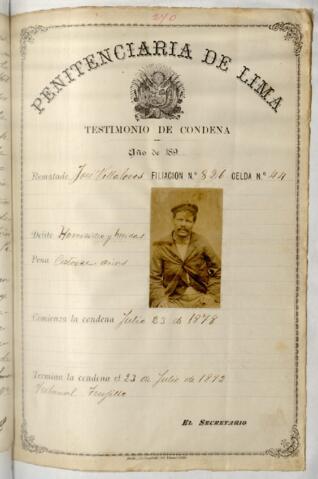 270
PENITENCIARIA DE LIMA
TESTIMONIO DE CONDENA
Año de 189
Rematado José Villalobos FILIACION N.º 826 CELDA N.º 44
Delito Homicidio y heridas
Pena Catorce años
Comienza la condena Julio 23 de 1878
Termina la condena el 23 de Julio de 1892
Tribunal Trujillo
EL SECRETARIO